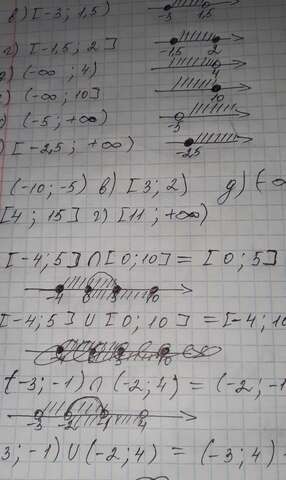 в) [-3; 1,5) -3 1,5
г) [-1,5; 2] -1,5 2
(-∞ ; 4) 4
(-∞ ; 10] 10
(-5; +∞) -5
[-2,5; +∞) -2,5
(-10; -5) в) [3; 2) д) (-∞
[4; 15] г) [11; +∞)
[-4; 5] ∩ [0; 10] = [0; 5]
-4 0 5 10
[-4; 5] ∪ [0; 10] = [-4; 10
(-3; -1) ∩ (-2; 4) = (-2; -1
-3 -2 -1 4
3; -1) ∪ (-2; 4) = (-3; 4)